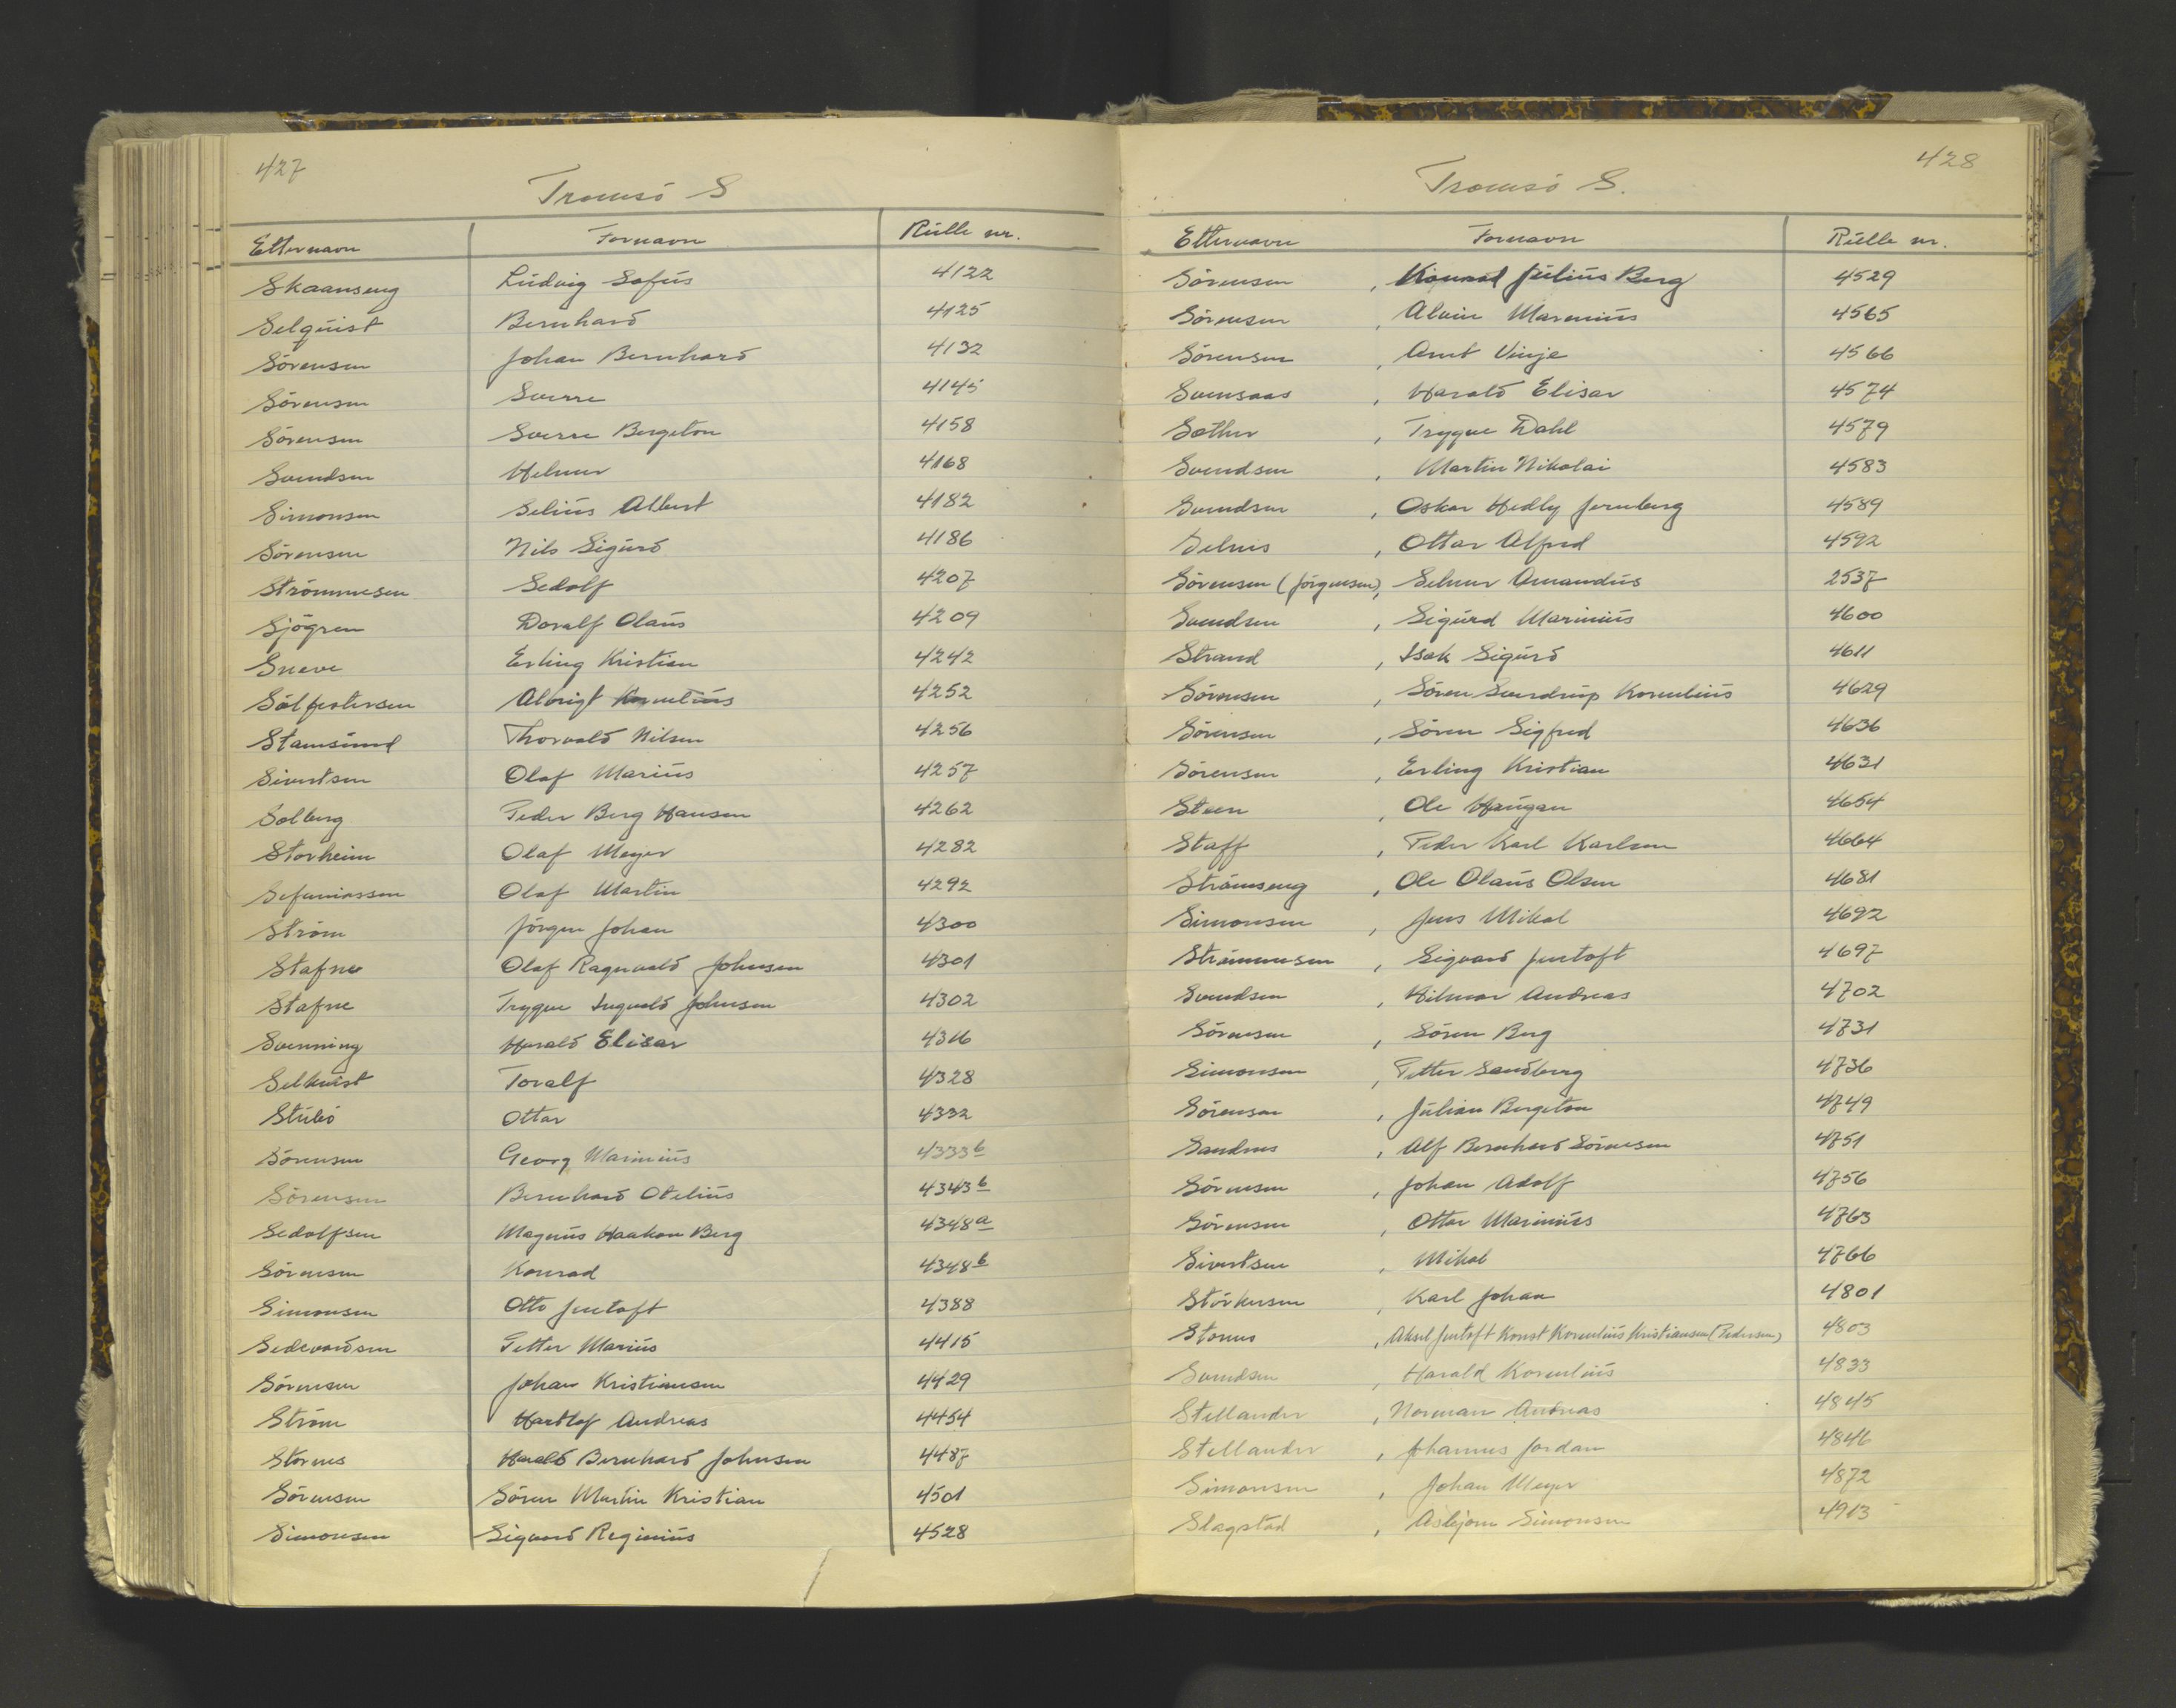 427
Tromsö S
Etternavn Fornavn Rulle nr.
Skaanseng Ludvig Sofus 4122
Selquist Bernhard 4125
Sörensen Johan Bernhard 4132
Sörensen Sverre 4145
Sörensen Sverre Bergeton 4158
Svendsen Helmer 4168
Simonsen Selius Albert 4182
Sörensen Nils Sigurd 4186
Strömmesen Sedolf 4207
Sjögren Doralf Olaus 4209
Sneve Erling Kristian 4242
Sölfestersen Albrigt Kornelius 4252
Stamsund Thorvald Nilsen 4256
Sivertsen Olaf Marius 4257
Solberg Peder Berg Hansen 4262
Storheim Olaf Meyer 4282
Sefaniassen Olaf Martin 4292
Ström Jörgen Johan 4300
Stafne Olaf Ragnvald Johnsen 4301
Stafne Trygve Ingvald Johnsen 4302
Svenning Harald Elisar 4316
Selkvist Toralf 4328
Stubö Ottar 4332
Sörensen Georg Marinius 4333 b
Sörensen Bernhard Otelius 4343 b
Sedolfsen Magnus Haakon Berg 4348 a
Sörensen Konrad 4348 b
Simonsen Otto Jentoft 4388
Sedevardsen Petter Marius 4415
Sörensen Johan Kristiansen 4429
Ström Hartlof Andreas 4454
Stornes Harald Bernhard Johnsen 4487
Sörensen Sören Martin Kristian 4501
Simonsen Sigvard Reginius 4528
428
Tromsö S.
Etternavn Fornavn Rulle nr.
Sörensen , Konrad Julius Berg 4529
Sörensen , Alvin Marenius 4565
Sörensen , Arnt Vinje 4566
Svensaas , Harald Elisar 4574
Sæther , Trygve Dahl 4579
Svendsen , Martin Nikolai 4583
Svendsen , Oskar Hedly Jernberg 4589
Selnes , Ottar Alfred 4592
Sörensen (Jörgensen), Selmer Amandus 2537
Svendsen , Sigurd Marinius 4600
Strand , Isak Sigurd 4611
Sörensen , Sören Sverdrup Kornelius 4629
Sörensen , Sören Sigfred 4636
Sörensen , Erling Kristian 4631
Steen , Ole Haugan 4654
Staff , Peder Karl Karlsen 4664
Strömseng , Ole Olaus Olsen 4681
Simonsen , Jens Mikal 4692
Strömmesen , Sigvard Jentoft 4697
Svendsen , Hilmar Andreas 4702
Sörensen , Sören Berg 4731
Simonsen , Petter Sandberg 4736
Sörensen , Julian Bergeton 4749
Sandnes , Alf Bernhard Sörensen 4751
Sörensen , Johan Adolf 4756
Sörensen , Ottar Marinius 4763
Sivertsen , Mikal 4766
Störkersen , Karl Johan 4801
Stornes , Aksel Jentoft Konst Kornelius Kristiansen (Pedersen) 4803
Svendsen , Harald Kornelius 4833
Stellander , Norman Andreas 4845
Stellander , Johannes Jordan 4846
Simonsen , Johan Meyer 4872
Slagstad , Asbjørn Simonsen 4913